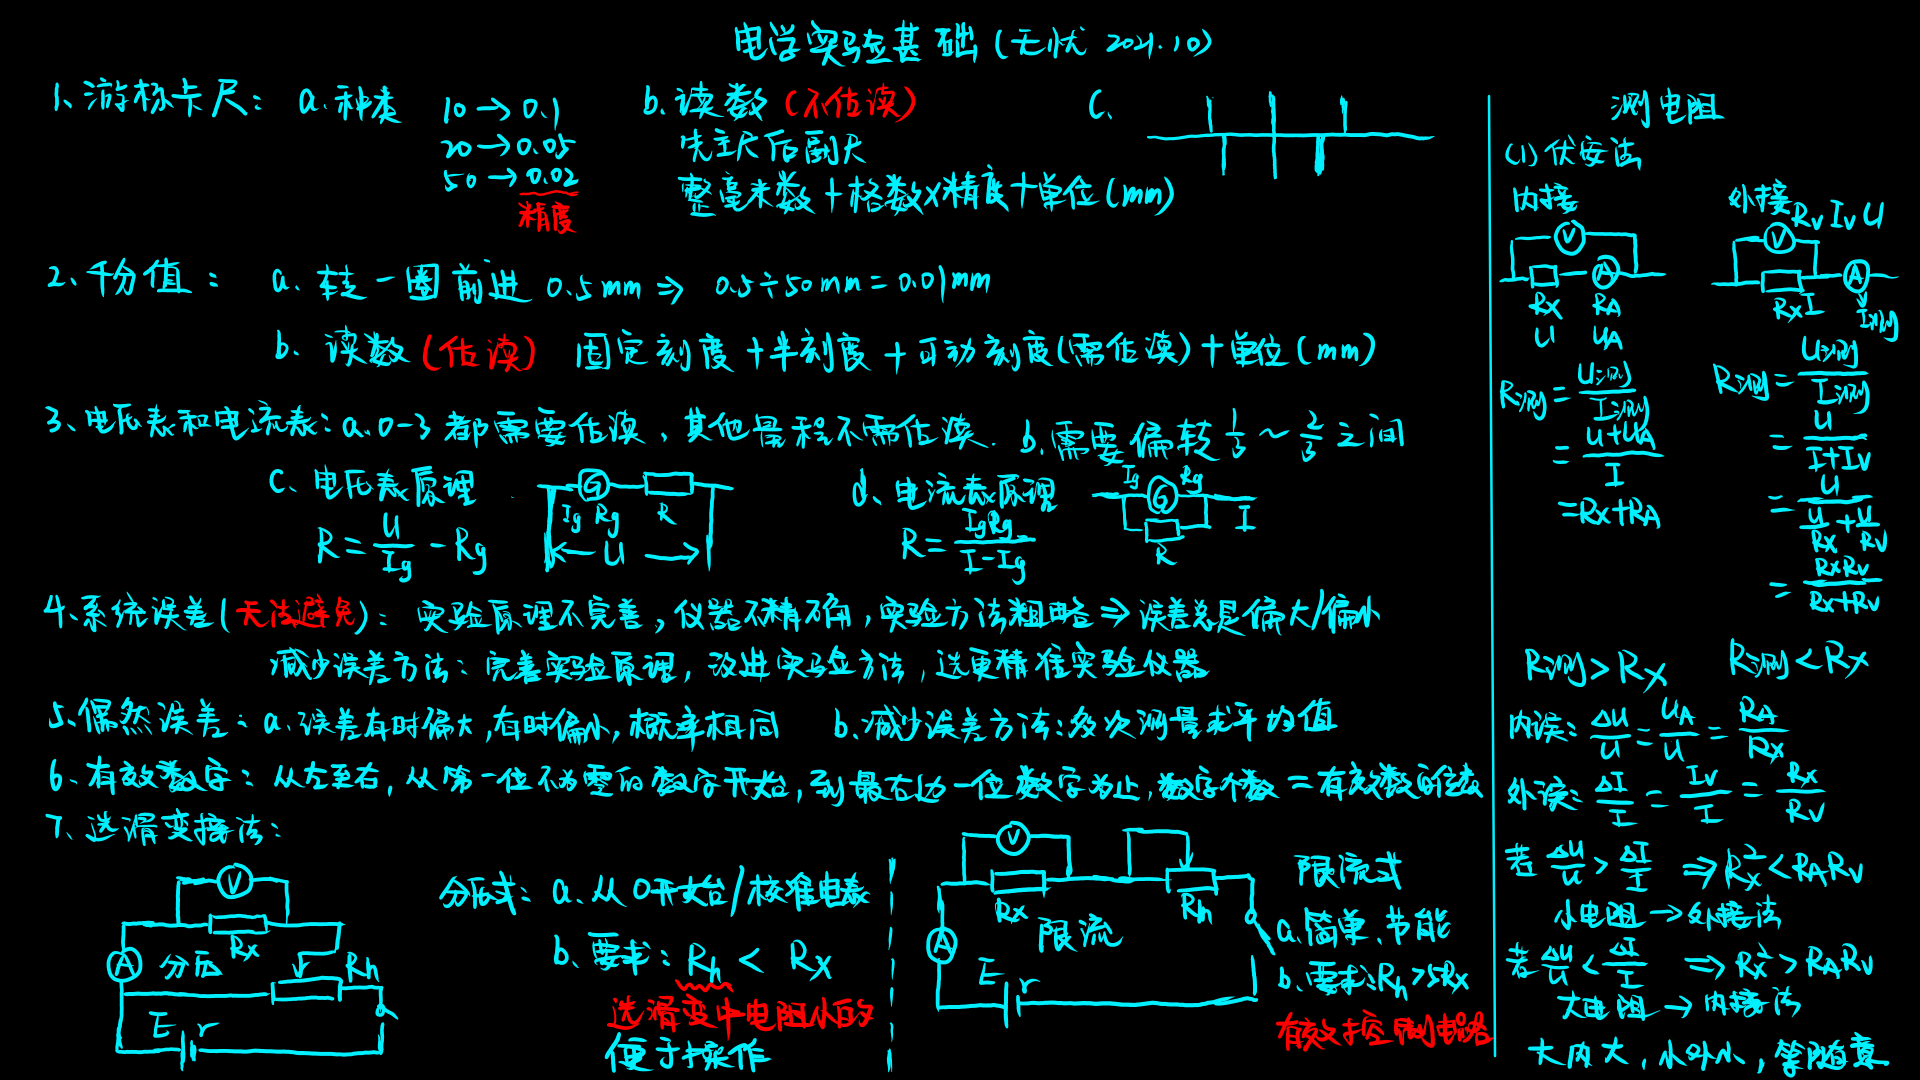 电学实验基础(无忧 2021.10)
1、游标卡尺: a.种类
10→0.1
20→0.05
50→0.02
精度
b.读数(不估读)
先主尺后副尺
整毫米数+格数×精度+单位(mm)
C.
2、千分值: a. 转一圈前进 0.5mm ⇒ 0.5÷50mm=0.01mm
b. 读数(估读) 固定刻度+半刻度+可动刻度(需估读)+单位(mm)
3、电压表和电流表: a.0-3都需要估读,其他量程不需估读. b.需要偏转1/3~2/3之间
C、电压表原理
R=U/Ig-Rg
G
Ig Rg R
U
d、电流表原理
R=IgRg/(I-Ig)
Ig Rg
G
I
R
4、系统误差(无法避免): 实验原理不完善,仪器不精确,实验方法粗略⇒误差总是偏大/偏小
减少误差方法:完善实验原理,改进实验方法,选更精准实验仪器
5、偶然误差: a.误差有时偏大,有时偏小,概率相同 b.减少误差方法:多次测量求平均值
6、有效数字:从左至右,从第一位不为零的数字开始,到最右边一位数字为止,数字个数=有效数的位数
7、选滑变接法:
V
Rx
A 分压 Rh
E r
分压式: a.从0开始/校准电表
b.要求:Rh<Rx
选滑变中电阻小的
便于操作
V
Rx Rh
限流
A
E r
限流式
a.简单、节能
b.要求:Rh>5Rx
有效控制电路
测电阻
(1)伏安法
内接
V
A
Rx RA
U UA
R测=U测/I测
=(U+UA)/I
=Rx+RA
外接 Rv Iv U
V
A
Rx I I测
R测=U测/I测
=U/(I+Iv)
=U/(U/Rx+U/Rv)
=RxRv/(Rx+Rv)
R测>Rx R测<Rx
内误:ΔU/U=UA/U=RA/Rx
外误:ΔI/I=Iv/I=Rx/Rv
若ΔU/U>ΔI/I ⇒Rx²<RARv
小电阻→外接法
若ΔU/U<ΔI/I ⇒Rx²>RARv
大电阻→内接法
大内大,小外小,等随意